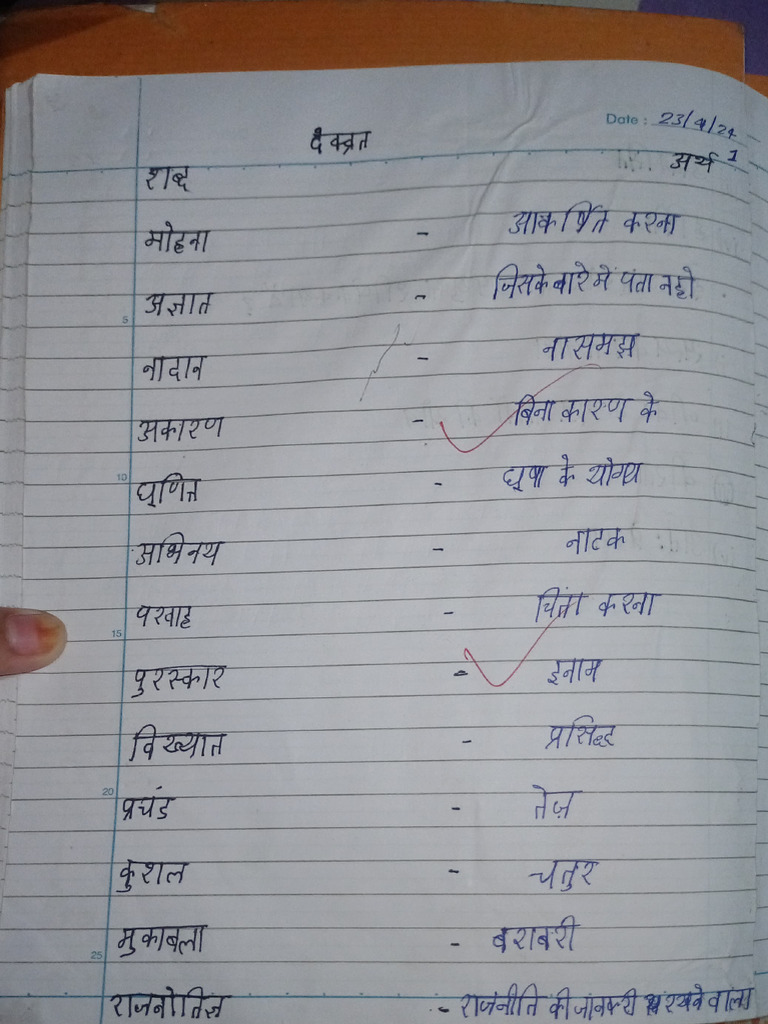 Date : 23/4/24
देवव्रत
शब्द अर्थ 1
मोहना - आकर्षित करना
अज्ञात - जिसके बारे में पता न हो
नादान - नासमझ
अकारण - बिना कारण के
घृणित - घृणा के योग्य
अभिनय - नाटक
परवाह - चिंता करना
पुरस्कार - इनाम
विख्यात - प्रसिद्ध
प्रचंड - तेज़
कुशल - चतुर
मुकाबला - बराबरी
राजनीतिज्ञ - राजनीति की जानकारी रखने वाला
5
10
15
20
25